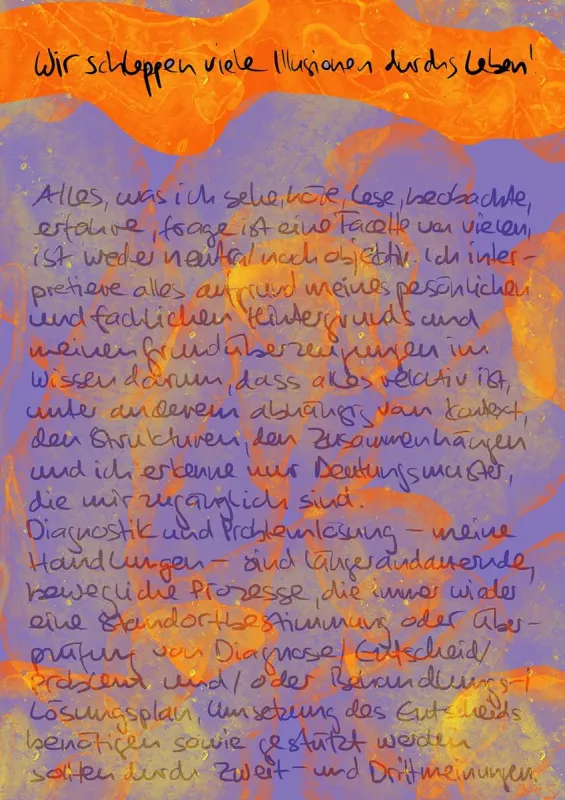 Wir schleppen viele Illusionen durchs Leben!
Alles, was ich sehe, höre, lese, beobachte,
erfahre, frage ist eine Facette von vielen,
ist weder neutral noch objektiv. Ich inter-
pretiere alles aufgrund meines persönlichen
und fachlichen Hintergrunds und
meinen Grundüberzeugungen im
Wissen darum, dass alles relativ ist,
unter anderem abhängig vom Kontext,
den Strukturen, den Zusammenhängen
und ich erkenne nur Deutungsmuster,
die mir zugänglich sind.
Diagnostik und Problemlösung – meine
Handlungen – sind längerandauernde,
bewegliche Prozesse, die immer wieder
eine Standortbestimmung oder Über-
prüfung von Diagnose/Entscheid/
Problem und/oder Behandlungs-/
Lösungsplan, Umsetzung des Entscheids
benötigen sowie gestützt werden
sollten durch Zweit- und Drittmeinungen.